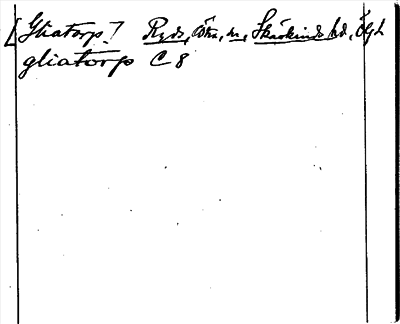 [Gliatorp? Ryds, Ötn., sn., Skärkinds hd., Ögl.
gliatorp C 8